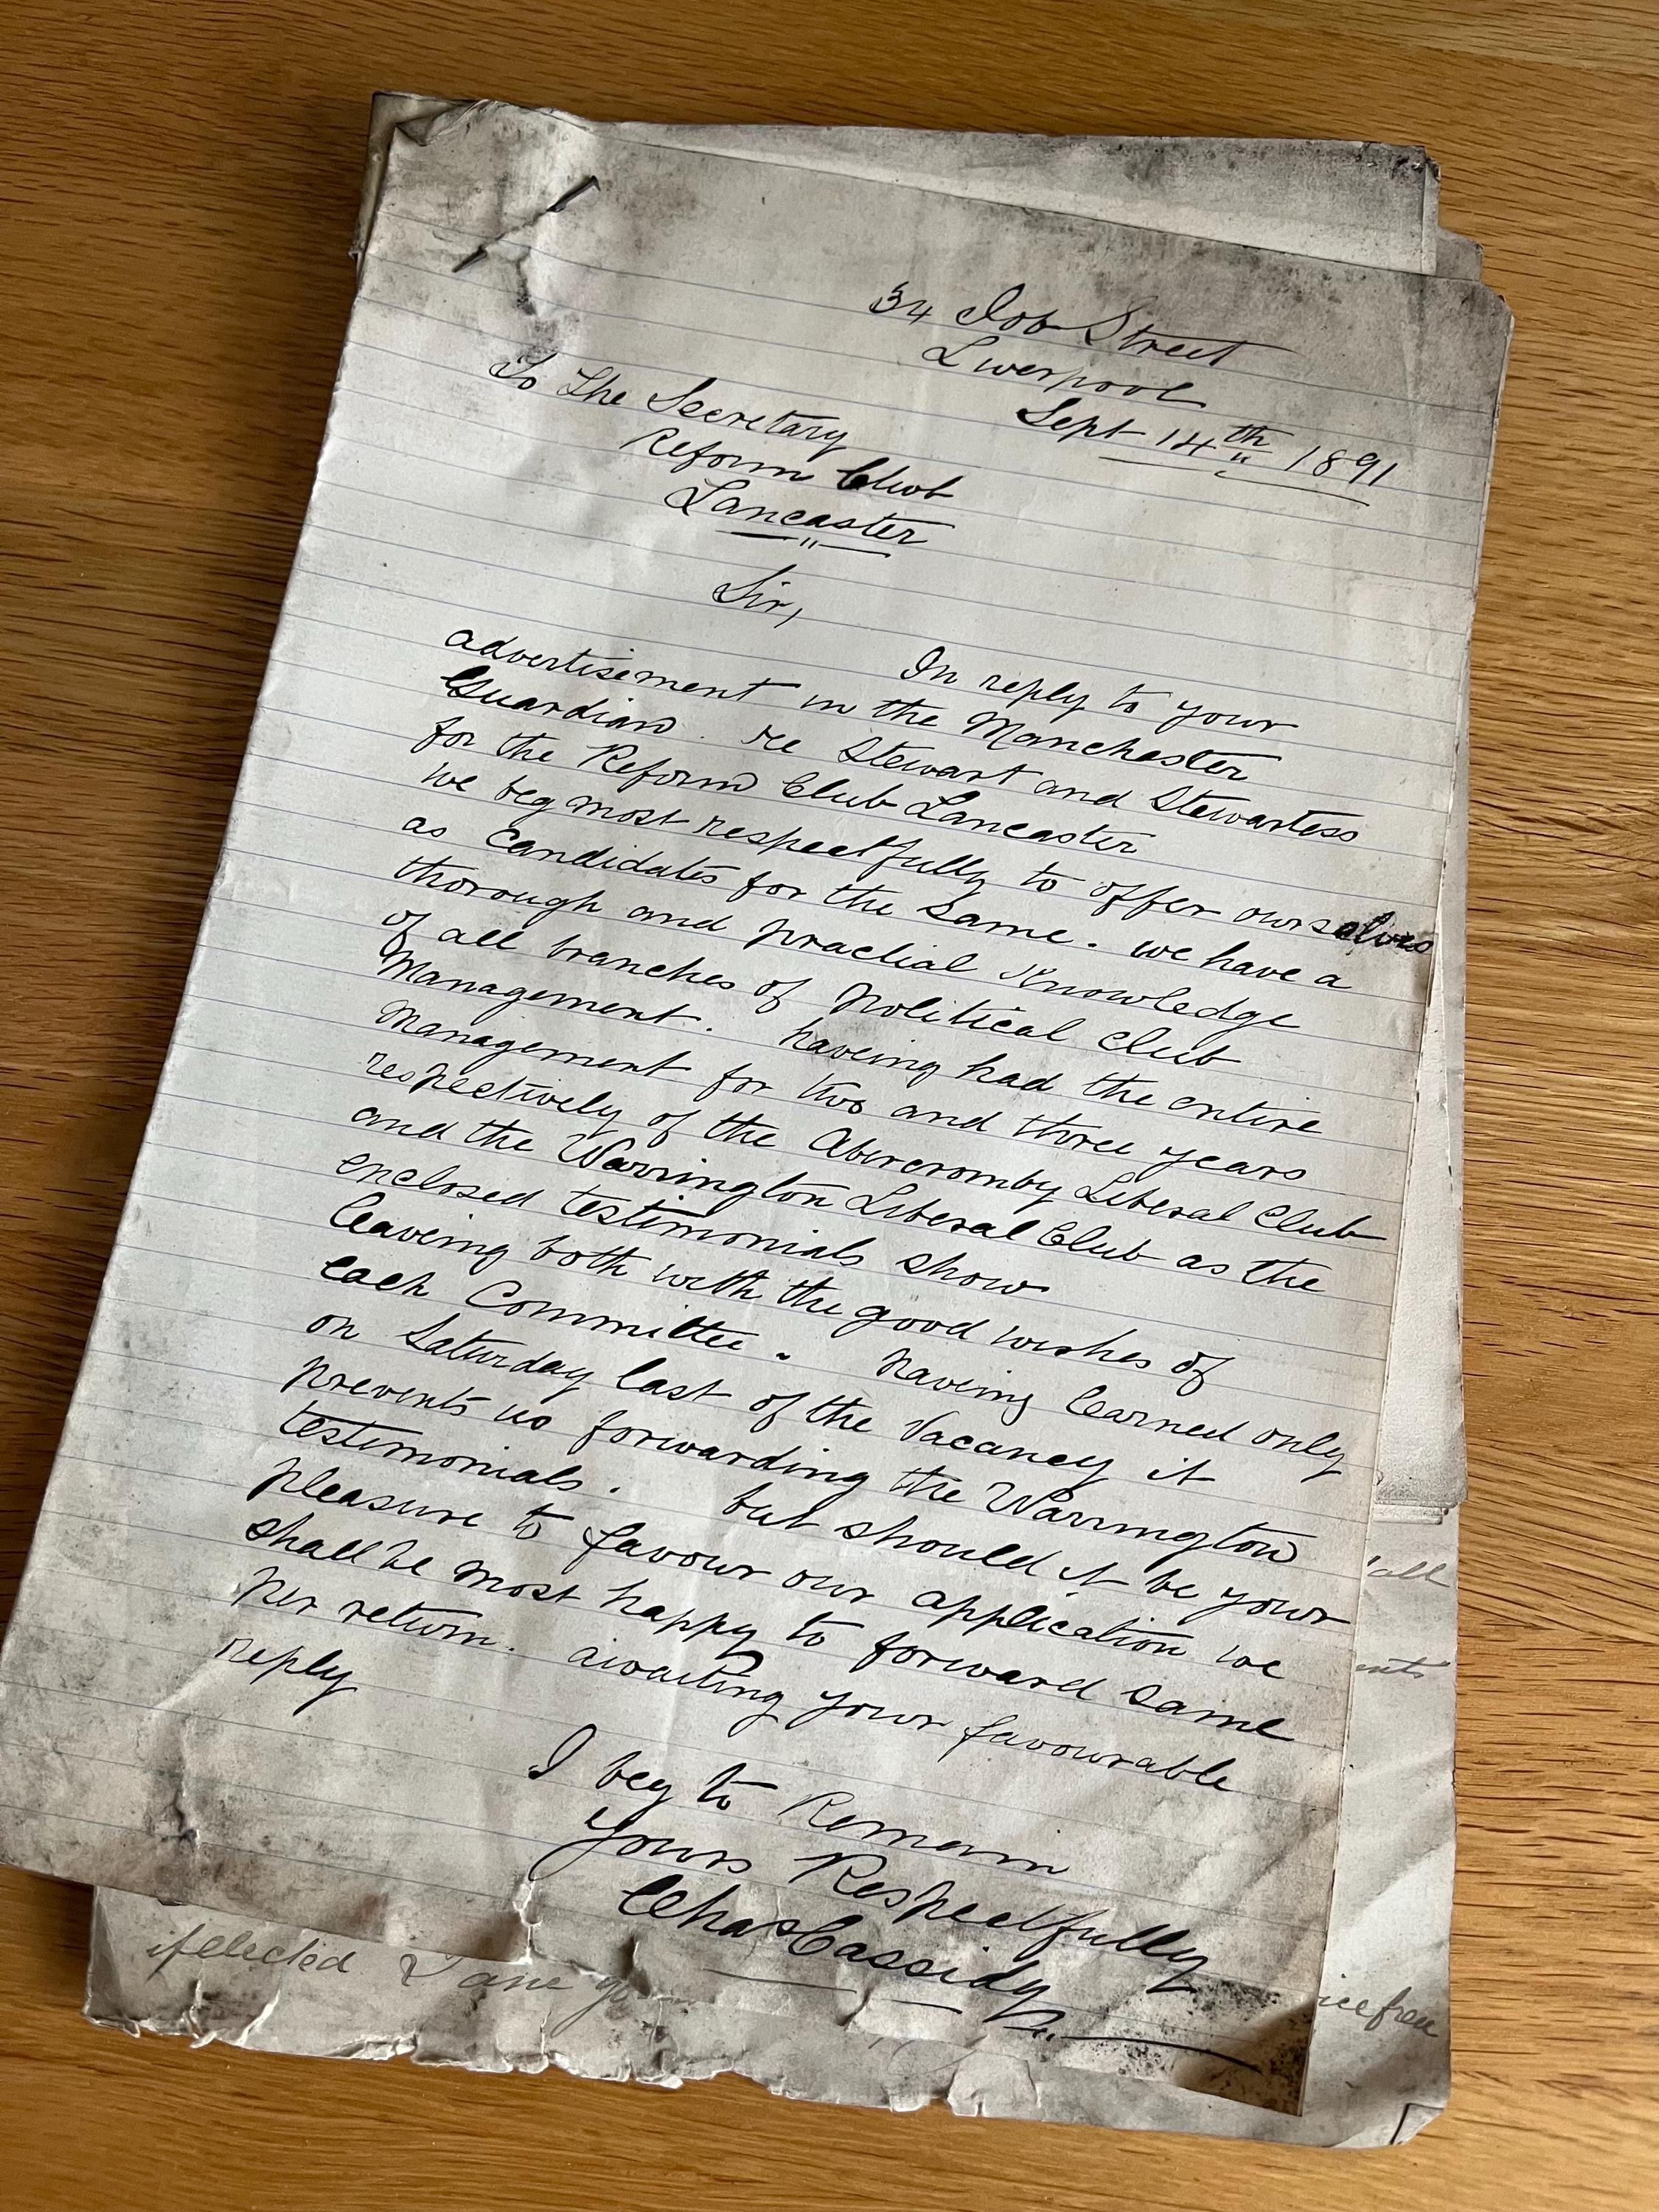 34 Job Street
Liverpool
Sept 14th 1891
To The Secretary
Reform Club
Lancaster
Sir,
In reply to your
advertisement in the Manchester
Guardian. re Stewart and Stewartess
for the Reform Club Lancaster
we beg most respectfully to offer ourselves
as Candidates for the Same. we have a
thorough and practial Knowledge
of all branches of political Club
Management. haveing had the entire
Management for two and three years
respectively of the Abercromby Liberal Club
and the Warrington Liberal Club as the
enclosed testimonials show
leaveing both with the good wishes of
each Committee. haveing learned only
on Saturday last of the Vacancy it
prevents us forwarding the Warrington
testimonials. but should it be your
pleasure to favour our application we
shall be most happy to forward Same
per return. awaiting your favourable
reply
I beg to Remain
Yours Respectfully
Chas Cassidy
if elected